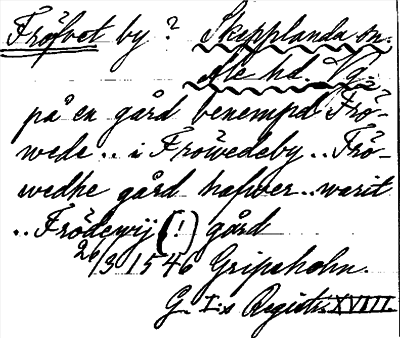 Frösvet by? Skepplanda sn.
Ale hd. Vg.
på en gård benempd Frö-
wede .. i Fröwedeby .. Frö-
wedhe gård hafwer .. warit
.. Frödewij (!) gård
26/3 1546 Gripsholm.
G. I:s Registr. XVIII.